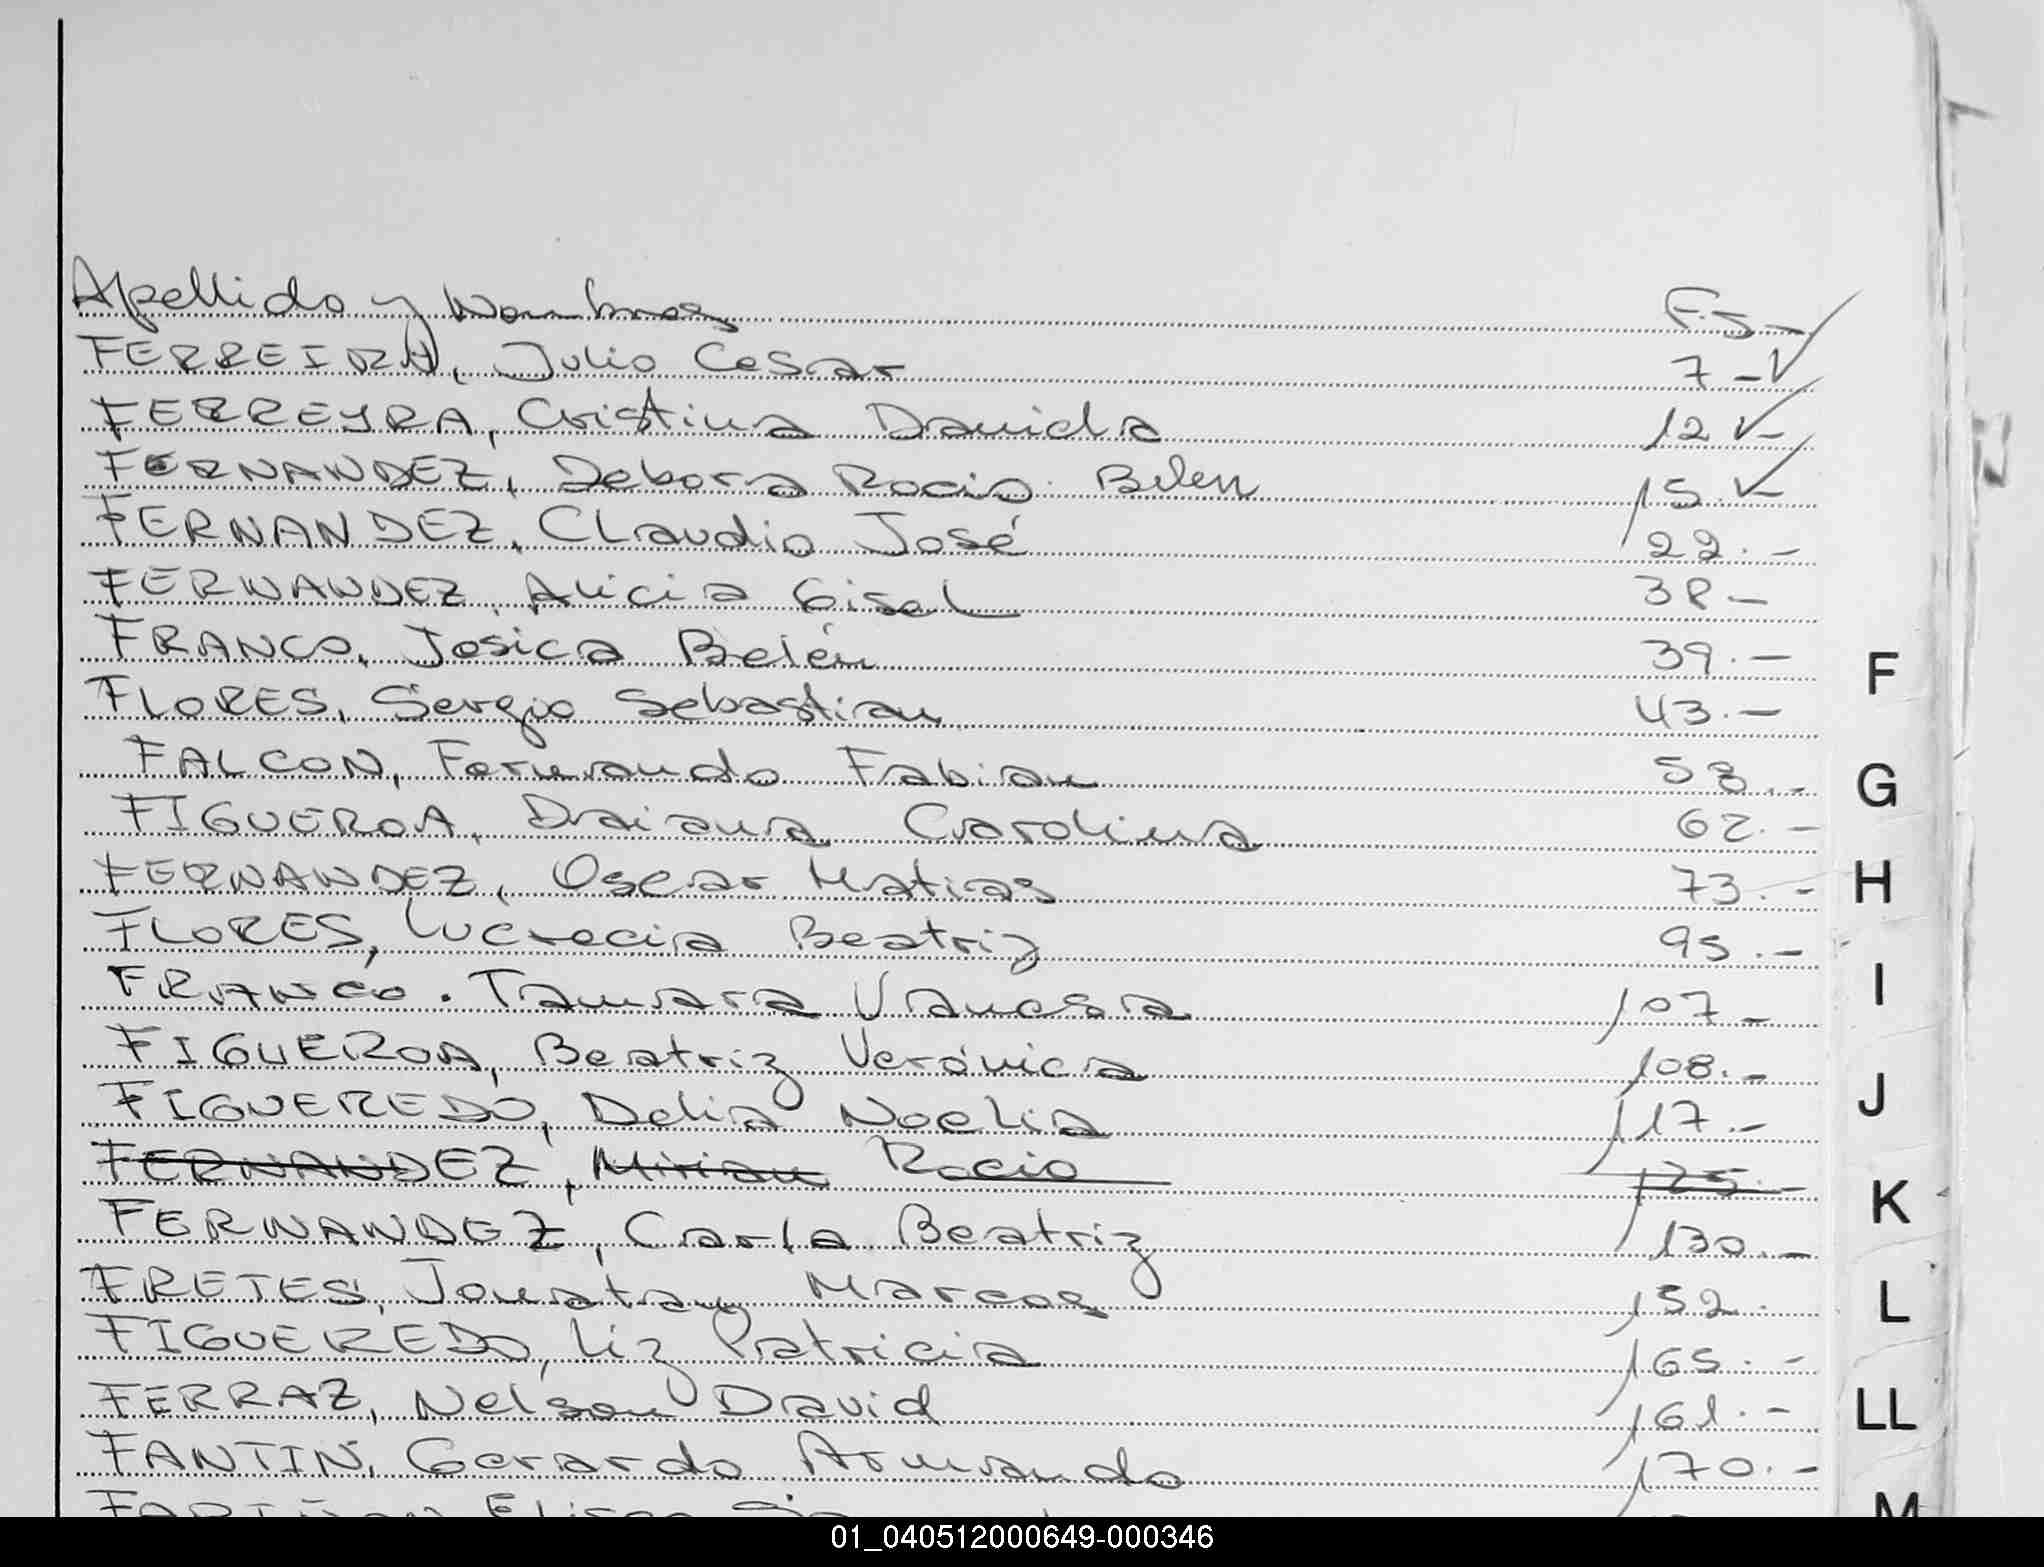 Apellido y Nombres FS-
FERREIRA, Julio Cesar 7-
FERREYRA, Cristina Daniela 12-
FERNANDEZ, Debora Rocio Belen 15-
FERNANDEZ, Claudio José 22.-
FERNANDEZ, Alicia Gisel 38-
FRANCO, Jesica Belén 39.-
FLORES, Sergio Sebastian 43.-
FALCON, Fernando Fabian 53.-
FIGUEROA, Daiana Carolina 62.-
FERNANDEZ, Oscar Matias 73.-
FLORES, Lucrecia Beatriz 95.-
FRANCO. Tamara Vanesa 107-
FIGUEROA, Beatriz Verónica 108.-
FIGUEREDO, Delia Noelia 117.-
FERNANDEZ, Mirian Rocio 125.-
FERNANDEZ, Carla Beatriz 130.-
FRETES, Jonatan Marcos 152.
FIGUEREDO, Liz Patricia 165.-
FERRAZ, Nelson David 161.-
FANTIN, Gerardo Armando 170.-
F
G
H
I
J
K
L
LL
M
01_040512000649-000346